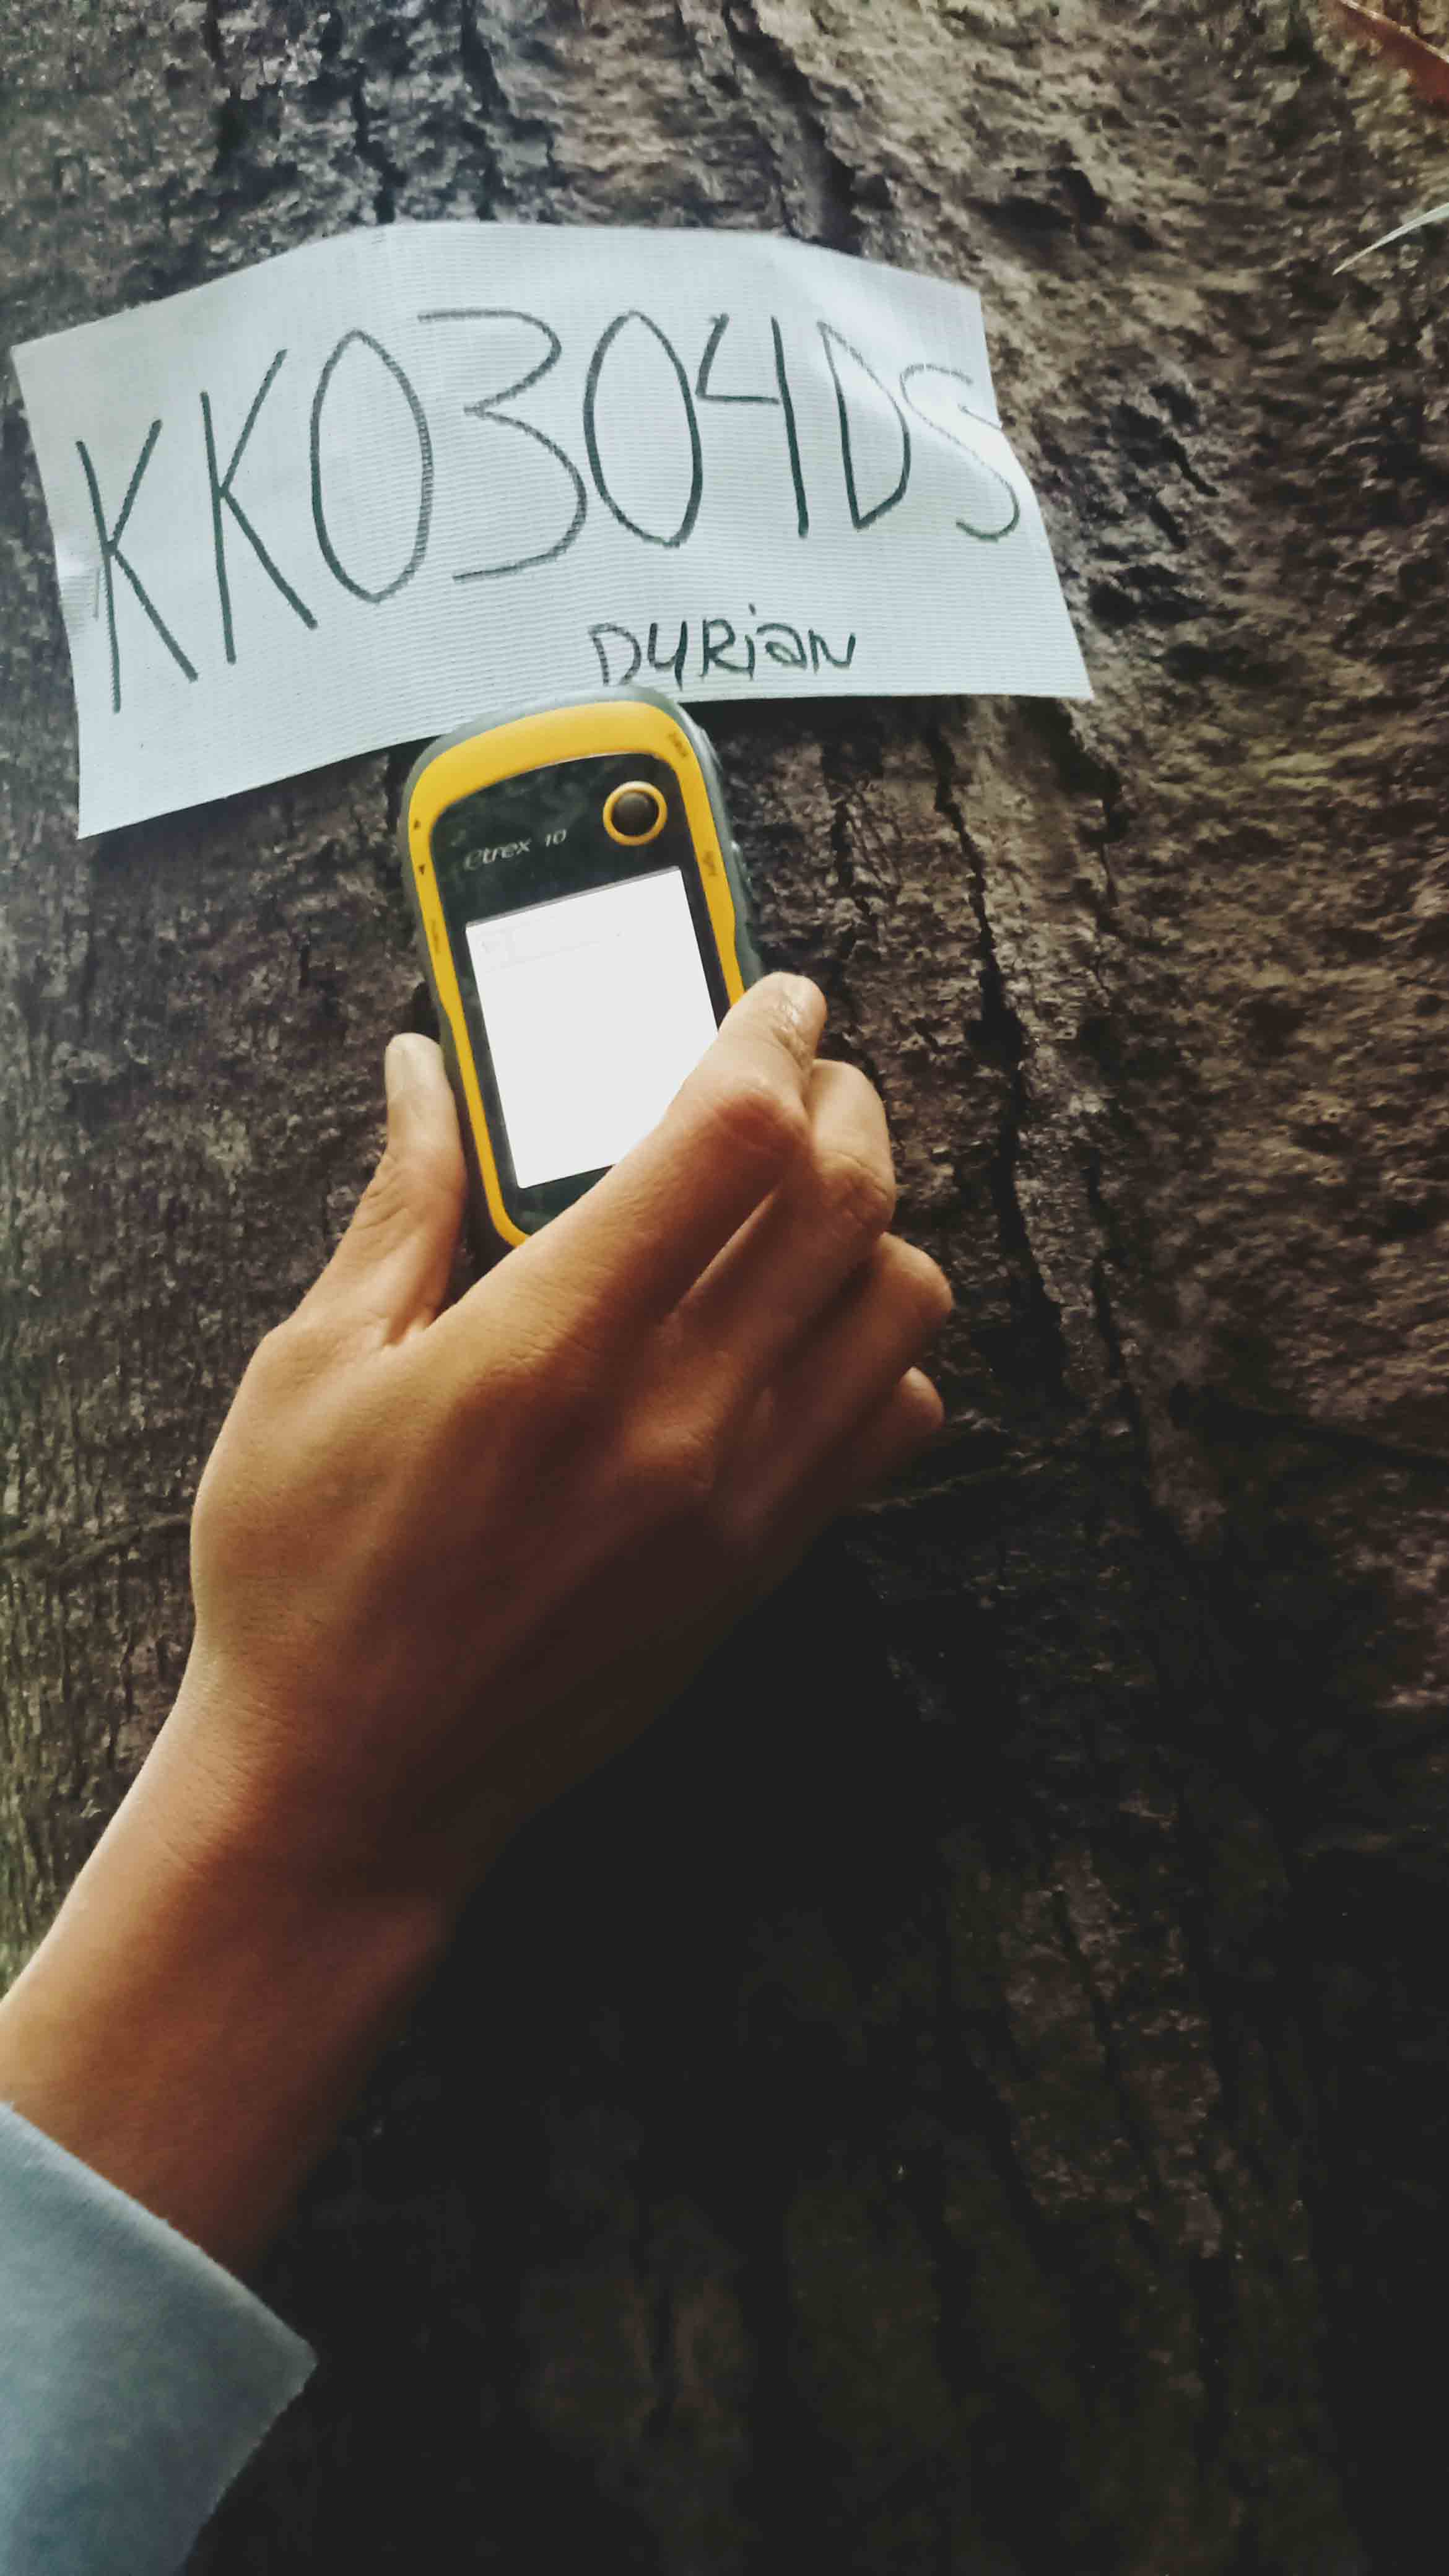 KK0304DS
DURiaN
etrex 10